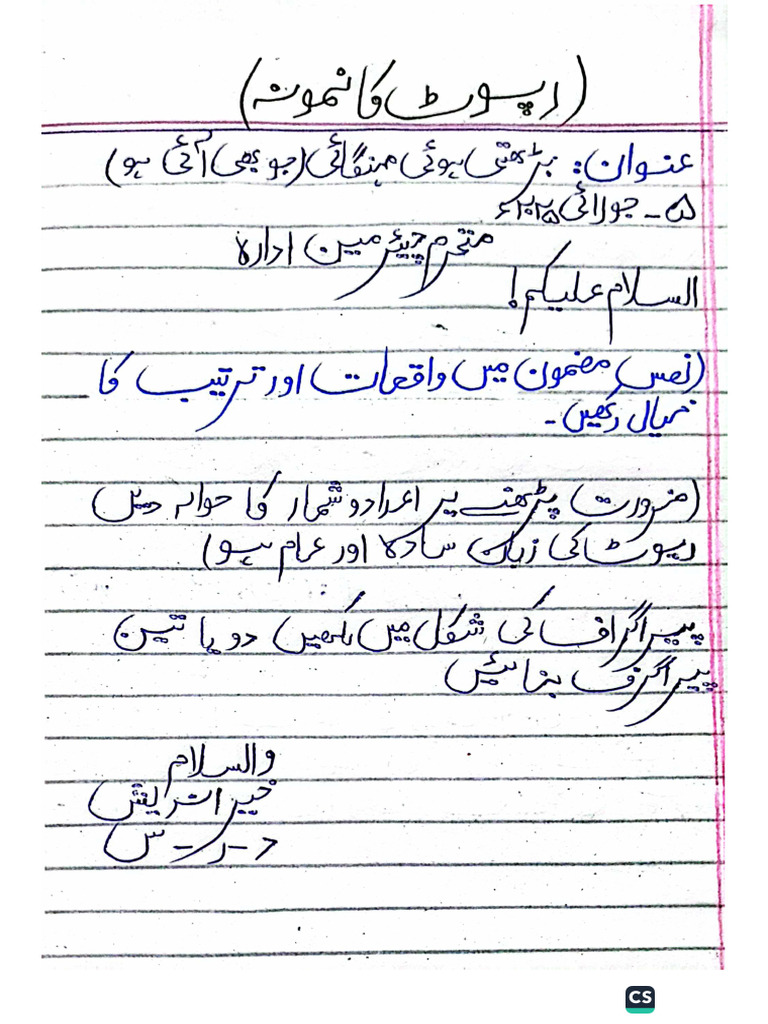 (رپورٹ کا نمونہ)
عنوان: بڑھتی ہوئی مہنگائی (جو بھی آئی ہو)
۵ - جولائی ۲۰۲۵ء
محترم چیئرمین ادارہ
السلام علیکم!
(نفس مضمون میں واقعات اور ترتیب کا
خیال رکھیں۔
(ضرورت پڑھنے پر اعداد و شمار کا حوالہ دیں
رپوٹ کی زبان سادہ اور عام ہو)
پیراگراف کی شکل میں لکھیں دو یا تین
پیراگرف بنائیں
والسلام
خیر اندیش
د - ر - س
CS